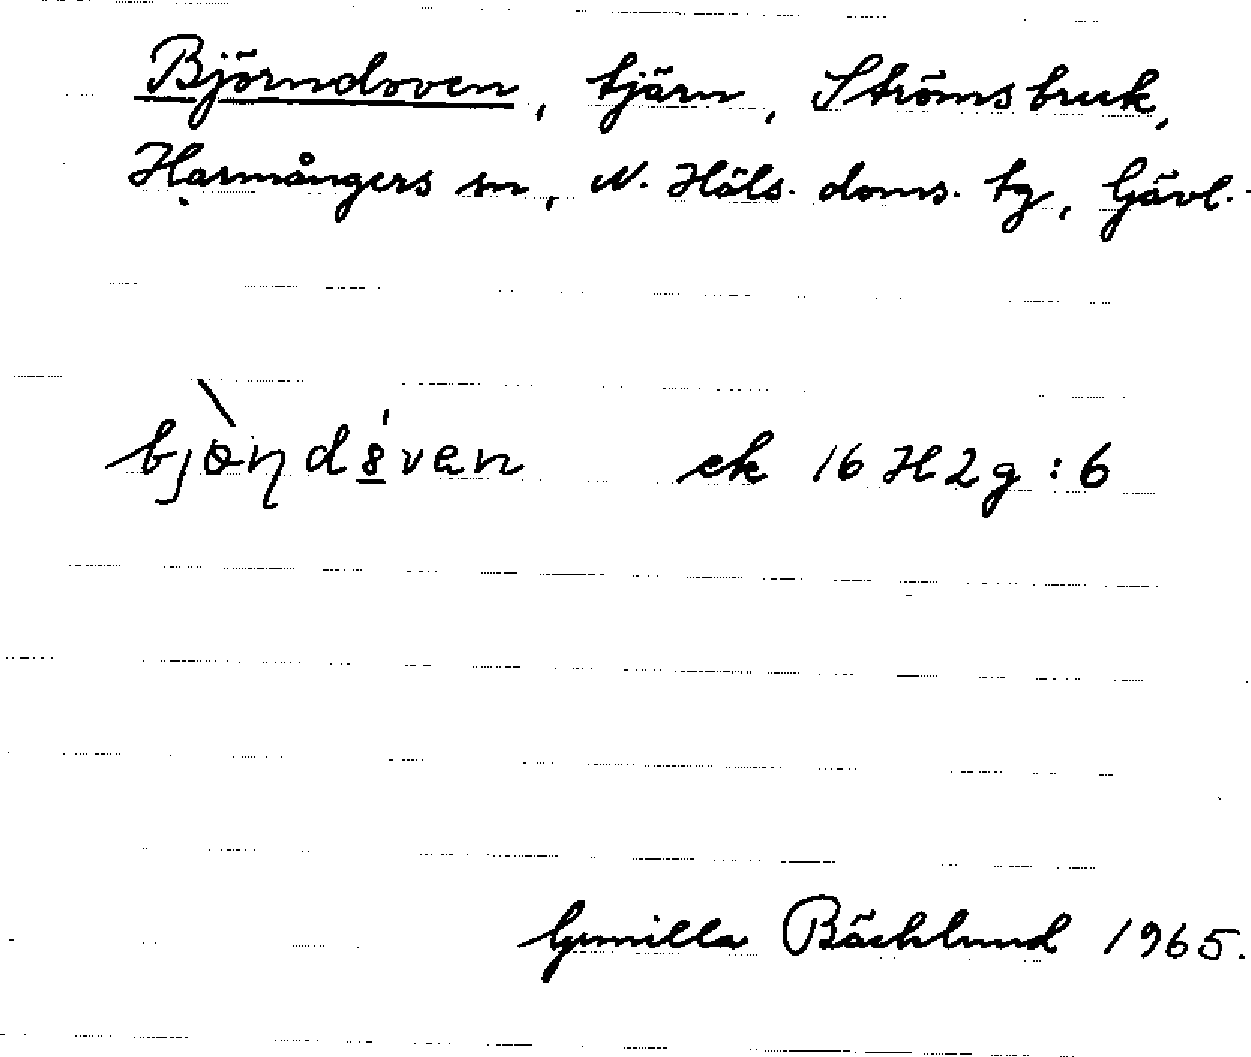 Björndoven, tjärn, Strömsbruk,
Harmångers sn, N. Häls. doms. tg, Gävl.
ek 16 H 2 g : 6
Gunilla Bäcklund 1965.